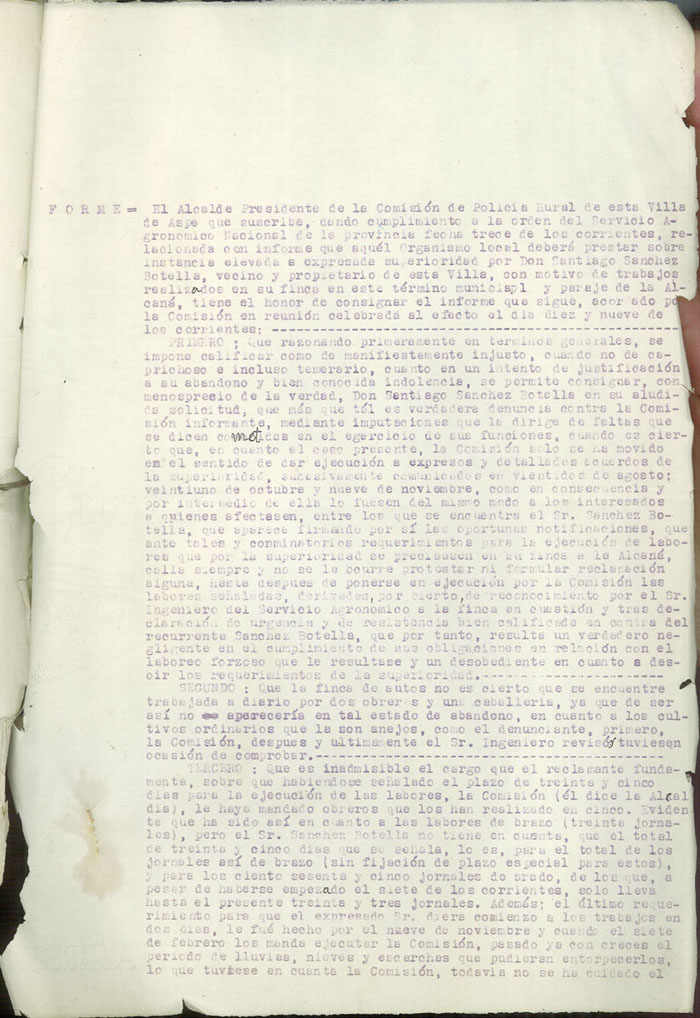 F O R M E = El Alcalde Presidente de la Comisión de Policia Rural de esta Villa
de Aspe que suscribe, dando cumplimiento a la orden del Servicio A-
gronomico Nacional de la provincia fecha trece de los corrientes, re-
lacionada con informe que aquél Organismo local deberá prestar sobre
instancia elevada a expresada superioridad por Don Santiago Sanchez
Botella, vecino y propietario de esta Villa, con motivo de trabajos
realizados en su finca en este término municiapl y paraje de la Al-
caná, tiene el honor de consignar el informe que sigue, acordado po
la Comisión en reunión celebrada al efecto el dia diez y nueve de
los corrientes: ----------------------------------------------------
PRIMERO : Que razonando primeramente en terminos generales, se
impone calificar como de manifiestamente injusto, cuando no de ca-
prichoso e incluso temerario, cuanto en un intento de justificación
a su abandono y bien conocida indolencia, se permite consignar, con
menosprecio de la verdad, Don Santiago Sanchez Botella en su aludi-
da solicitud, que más que tál es verdadera denuncia contra la Comi-
sión informante, mediante imputaciones que la dirige de faltas que
se dicen cometidas en el egercicio de sus funciones, cuando es cier-
to que, en cuanto al caso presente, la Comisión solo se ha movido
en el sentido de dar ejecución a expresos y detallados acuerdos de
la superioridad, sucesivamente comunicados en vientidos de agosto;
veintiuno de octubre y nueve de noviembre, como en consecuencia y
por intermedio de ella lo fuesen del mismo modo a los interesados
a quienes afectasen, entre los que se encuentra el Sr. Sanchez Bo-
tella, que aparece firmando por sí las oportunas notificaciones, que
ante tales y conminatorios requerimientos para la ejecución de labo-
res que por la superioridad se precisasen en su finca a la Alcaná,
calla siempre y no se le ocurre protestar ni formular reclamación
alguna, hasta despues de ponerse en ejecución por la Comisión las
labores señaladas, derivadas, por cierto, de reconocimiento por el Sr.
Ingeniero del Servicio Agronomico a la finca en cuestión y tras de-
claración de urgencia y de resistencia bien calificado en contra del
recurrente Sanchez Botella, que por tanto, resulta un verdadero ne-
gligente en el cumplimiento de sus obligaciones en relación con el
laboreo forzoso que le resultase y un desobediente en cuanto a des-
oir los requerimientos de la superioridad.--------------------------
SEGUNDO : Que la finca de autos no es cierto que se encuentre
trabajada a diario por dos obreros y una caballeria, ya que de ser
así no aparecería en tal estado de abandono, en cuanto a los cul-
tivos ordinarios que la son anejos, como el denunciante, primero,
la Comisión, despues y ultimamente el Sr. Ingeniero revisor tuviesen
ocasión de comprobar.-----------------------------------------------
TERCERO : Que es inadmisible el cargo que el reclamante funda-
menta, sobre que habiendose señalado el plazo de treinta y cinco
dias para la ejecución de las labores, la Comisión (él dice la Alcal
dia), le haya mandado obreros que los han realizado en cinco. Eviden
te que ha sido así en cuanto a las labores de brazo (treinta jorna-
les), pero el Sr. Sanchez Botella no tiene en cuenta, que el total
de treinta y cinco dias que se señala, lo es, para el total de los
jornales así de brazo (sin fijación de plazo especial para estos),
y para los ciento sesenta y cinco jornales de arado, de los que, a
pesar de haberse empezado el siete de los corrientes, solo lleva
hasta el presente treinta y tres jornales. Además; el último reque-
rimiento para que el expresado Sr. diera comienzo a los trabajos en
dos dias, le fué hecho por el nueve de noviembre y cuando el siete
de febrero los manda ejecutar la Comisión, pasado ya con creces el
periodo de lluvias, nieves y escarchas que pudieran entorpecerlos,
lo que tuviese en cuanta la Comisión, todavia no se ha cuidado el